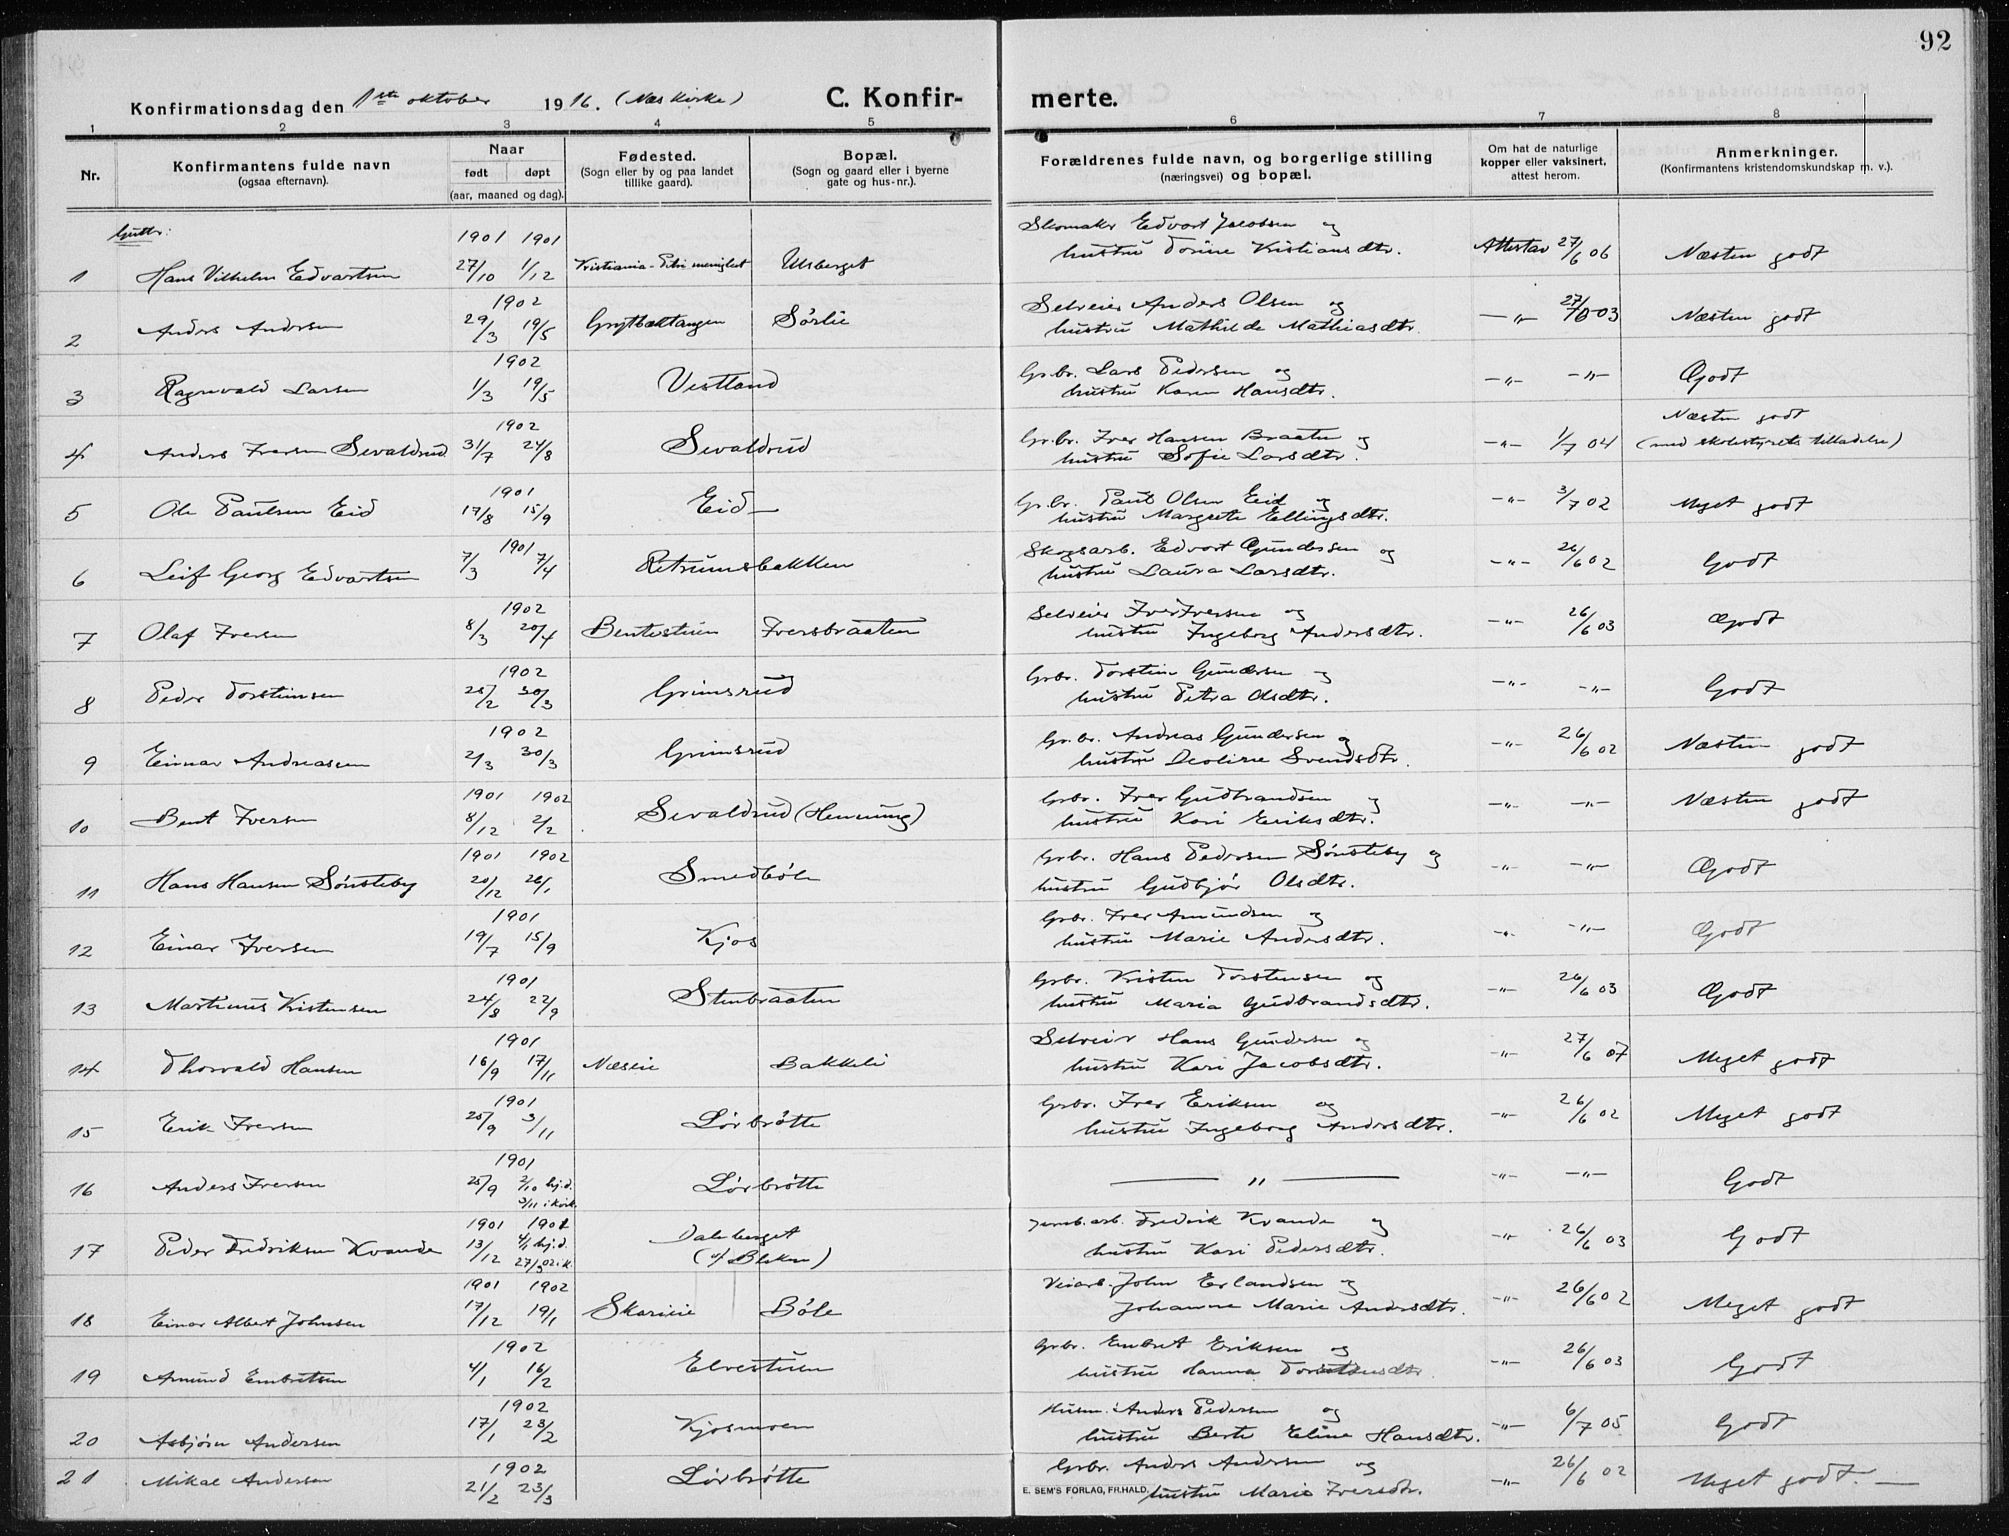 92
Konfirmationsdag den 1ste oktober 1916. (Næs kirke) C. Konfirmerte.
1 2 3 4 5 6 7 8
Nr. Konfirmantens fulde navn (ogsaa efternavn). Naar født døpt (aar, maaned og dag). Fødested. (Sogn eller by og paa landet tillike gaard). Bopæl. (Sogn og gaard eller i byerne gate og hus-nr.). Forældrenes fulde navn, og borgerlige stilling (næringsvei) og bopæl. Om hat de naturlige kopper eller vaksinert, attest herom. Anmerkninger. (Konfirmantens kristendomskundskap m. v.).
Gutter:
1 Hans Vilhelm Edvartsen 1901 27/10 1901 1/12 Kristiania - Petri menighet Ulsberget Skomaker Edvart Jacobsen og hustru Torine Kristiansdtr. Attestav 27/6 06 Næsten godt
2 Anders Andersen 1902 29/3 19/5 Grytbæktangen Sørlie Selveier Anders Olsen og hustru Mathilde Mathiasdtr. —"— 03 Næsten godt
3 Ragnvald Larsen 1902 1/3 19/5 Vestland Gr.br. Lars Pedersen og hustru Karen Hansdtr. —"— —"— Godt
4 Anders Iversen Sevaldrud 1902 31/7 24/8 Sevaldrud Gr.br. Iver Hansen Braaten og hustru Sofie Larsdtr. —"— 1/7 04 Næsten godt (med skolestyrets tilladelse)
5 Ole Paulsen Eid 1901 17/8 15/9 Eid — Gr.br. Paul Olsen Eid og hustru Margrete Ellingsdtr. —"— 3/7 02 Meget godt
6 Leif Georg Edvartsen 1901 7/3 7/4 Retrumsbakken Skogsarb. Edvart Gundersen og hustru Laura Larsdtr. —"— 26/6 02 Godt
7 Olaf Iversen 1902 8/3 20/4 Bentestuen Iversbraaten Selveier Iver Iversen og hustru Ingeborg Andersdtr. —"— 26/6 03 Godt
8 Peder Torstensen 1902 25/2 30/3 Grimsrud Grbr. Torstein Gundersen og hustru Petra Olsdtr. —"— —"— Godt
9 Einar Andreassen 1902 2/3 30/3 Grimsrud Gr.br. Andreas Gundersen og hustru Deoline Svendsdtr. —"— 26/6 02 Næsten godt
10 Bent Iversen 1901 8/12 1902 2/2 Sevaldrud (Henning) Grbr. Iver Gudbrandsen og hustru Kari Eriksdtr. —"— —"— Næsten godt
11 Hans Hansen Sønsteby 1901 20/12 1902 26/1 Smedbøle Grbr. Hans Pedersen Sønsteby og hustru Gudbjør Olsdtr. —"— —"— Godt
12 Einar Iversen 1901 19/7 15/9 Kjos Grbr. Iver Amundsen og hustru Marie Andersdtr. —"— —"— Godt
13 Martinius Kristensen 1901 24/8 22/9 Stenbraaten Grbr. Kristen Torstensen og hustru Maria Gudbrandsdtr. —"— 26/6 03 Godt
14 Thorvald Hansen 1901 16/9 17/11 Næseie Bakkeli Selveier Hans Gundersen og hustru Kari Jacobsdtr. —"— 27/6 07 Meget godt
15 Erik Iversen 1901 25/9 3/11 Lørbrøtte Grbr. Iver Eriksen og hustru Ingeborg Andersdtr. —"— 26/6 02 Meget godt
16 Anders Iversen 1901 25/9 2/10 hj.d. 3/11 i kirk. Lørbrøtte —— " —— —"— —"— Godt
17 Peder Fredriksen Kvande 1901 13/12 1902 4/1 hj.d. 27/3 02 i k. Daleberget Jernb.arb. Fredrik Kvande og hustru Kari Pedersdtr. —"— 26/6 03 Godt
18 Einar Albert Johnsen 1901 17/12 1902 19/1 Skarseie Bøle Veiarb. John Erlandsen og Johanne Marie Andersdtr. —"— 26/6 02 Meget godt
19 Amund Embretsen 1902 4/1 16/2 Elvestuen Grbr. Embret Eriksen og hustru Hanna —"— 26/6 03 Godt
20 Asbjørn Andersen 1902 17/1 23/2 Kjosmoen Husm. Anders Pedersen og hustru Berte Eline Hansdtr. —"— 6/7 05 Godt
21 Mikal Andersen 1902 21/2 23/3 Lørbrøtte Grbr. Anders Andersen og hustru Marie Iversdtr. —"— 26/6 02 Meget godt. —
E. SEM'S FORLAG, FR.HALD.